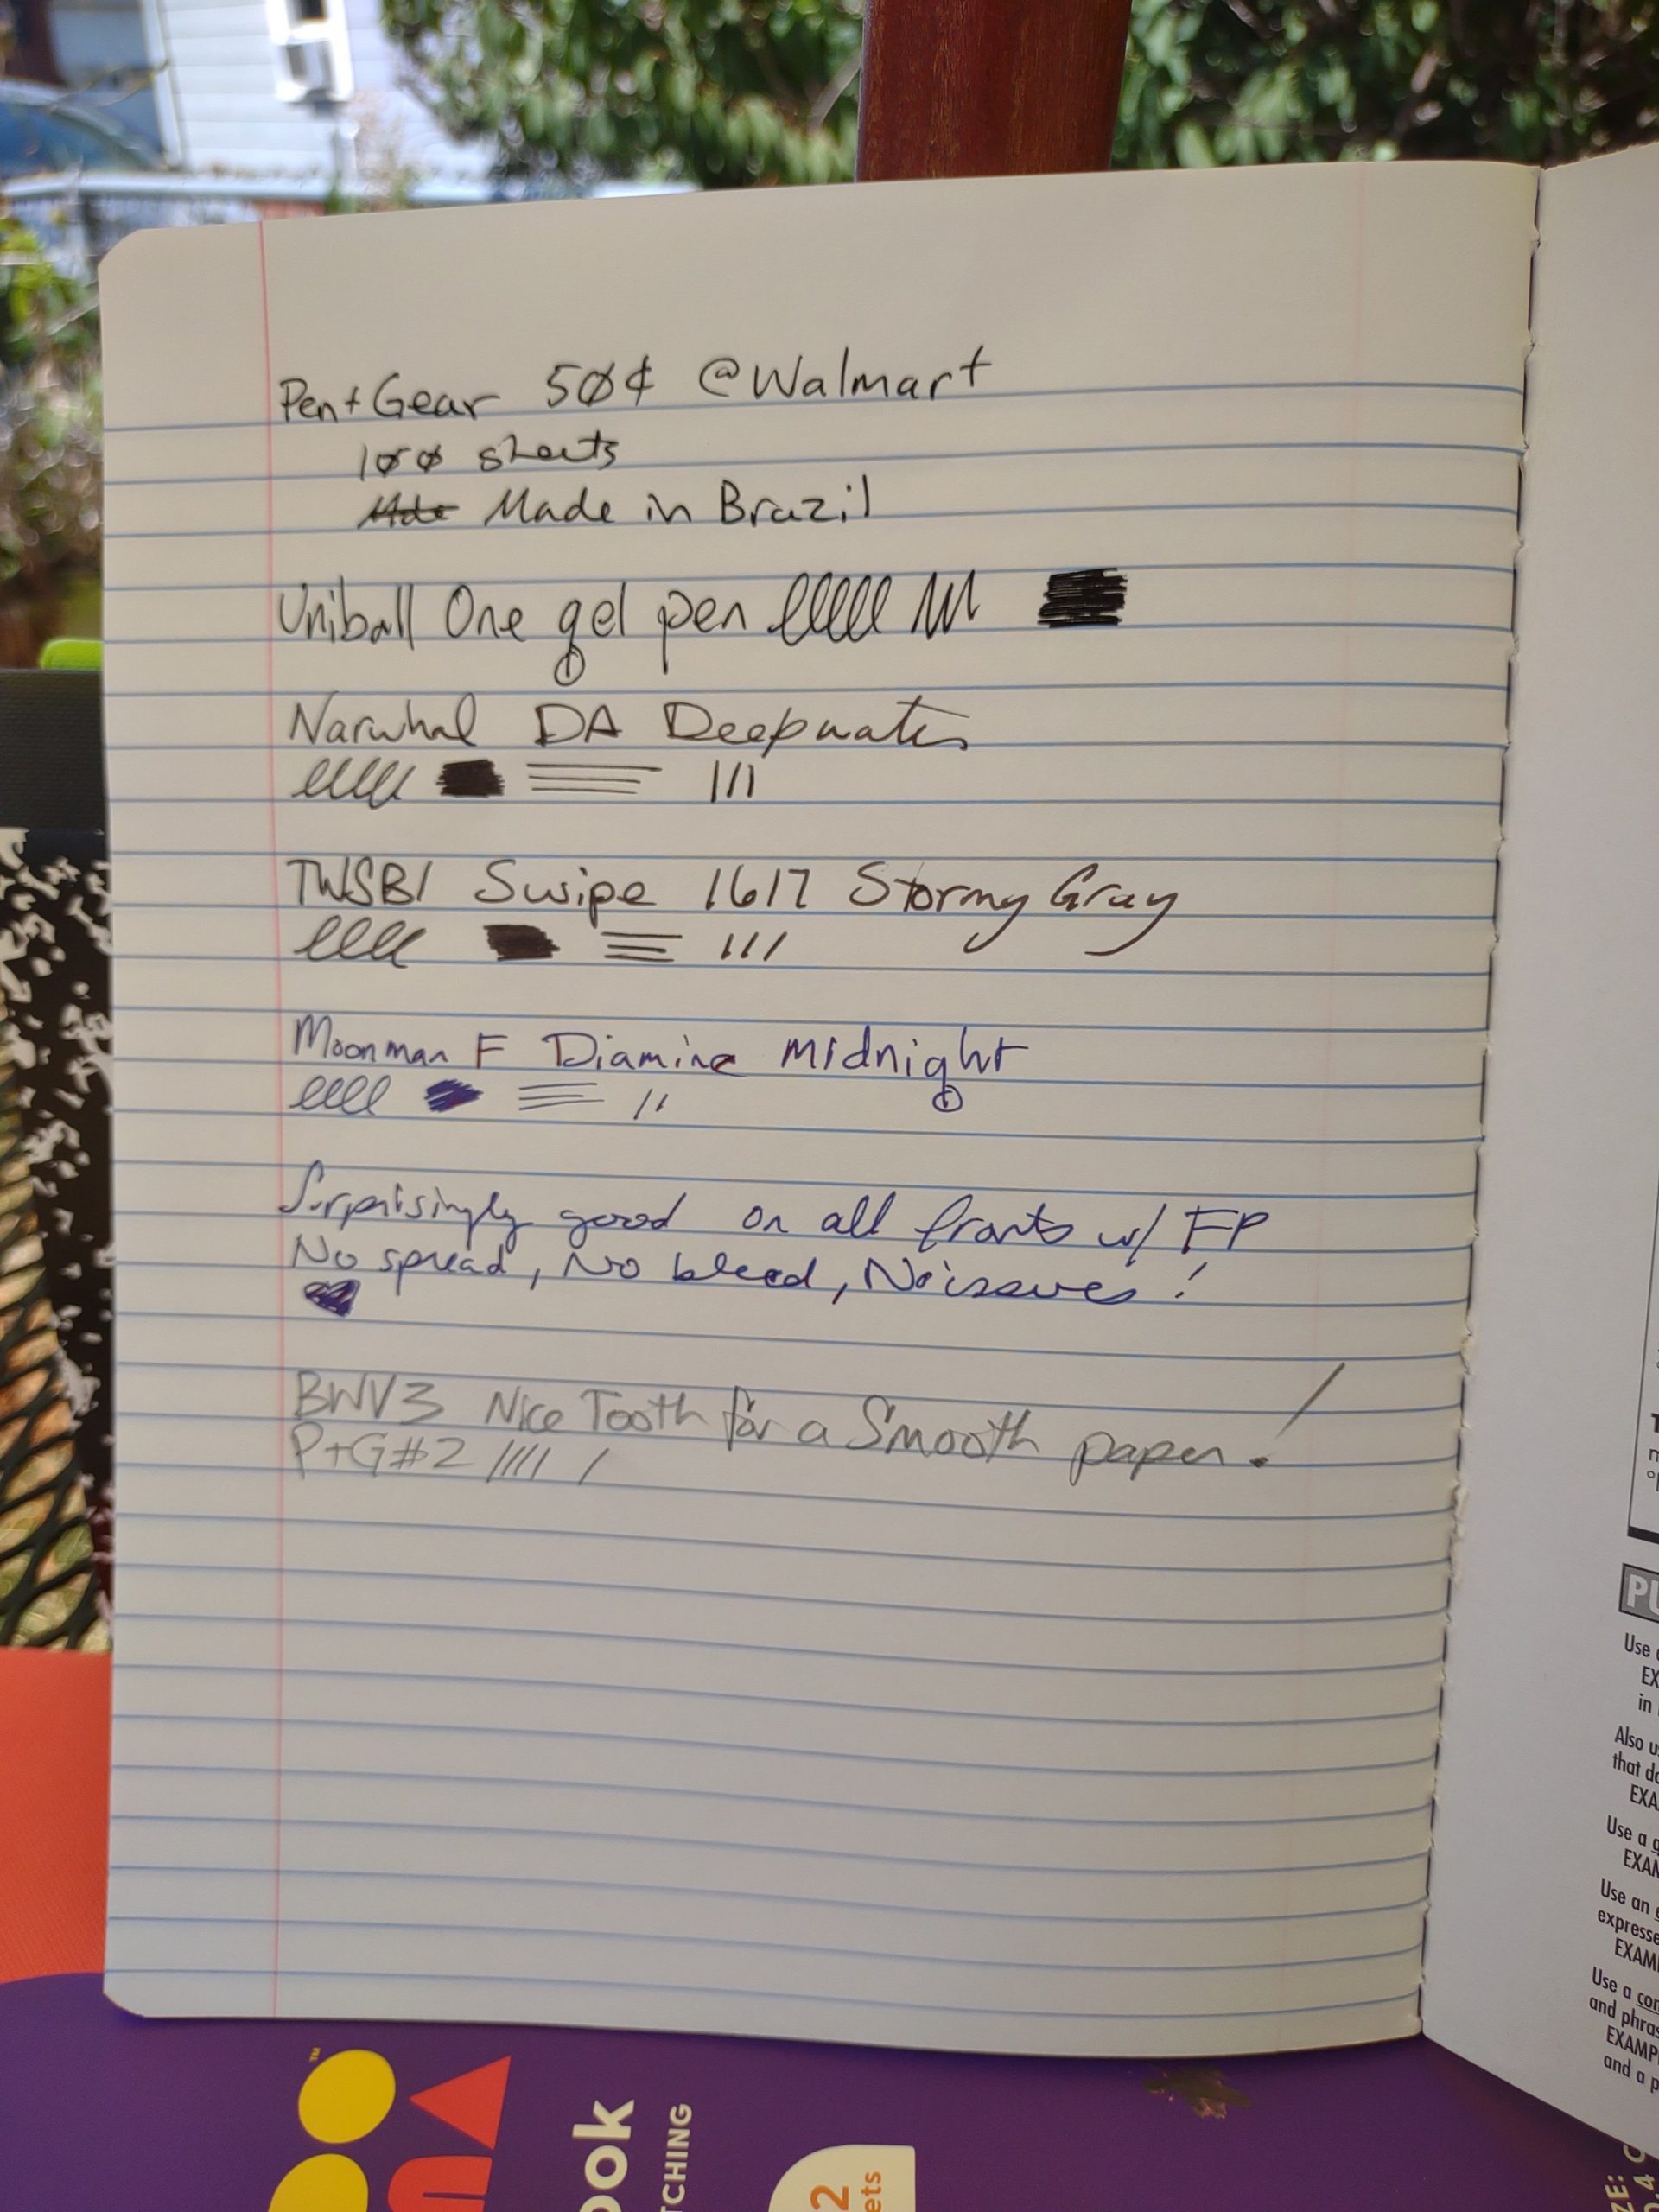 Pen+Gear 50¢ @Walmart
100 sheets
Made in Brazil
Uniball One gel pen
Narwhal DA Deepwater
TWSBI Swipe 1617 Stormy Gray
Moonman F Diamine Midnight
Surprisingly good on all fronts w/ FP
No spread, No bleed, No issues!
BWV3 Nice Tooth for a Smooth paper.!
P+G#2
PU
Use
EX
in
Also u
that do
EXA
Use a g
EXAM
Use an
expresse
EXAM
Use a con
and phras
EXAMP
and a p
TM
ook
TCHING
2
ets
ZE: